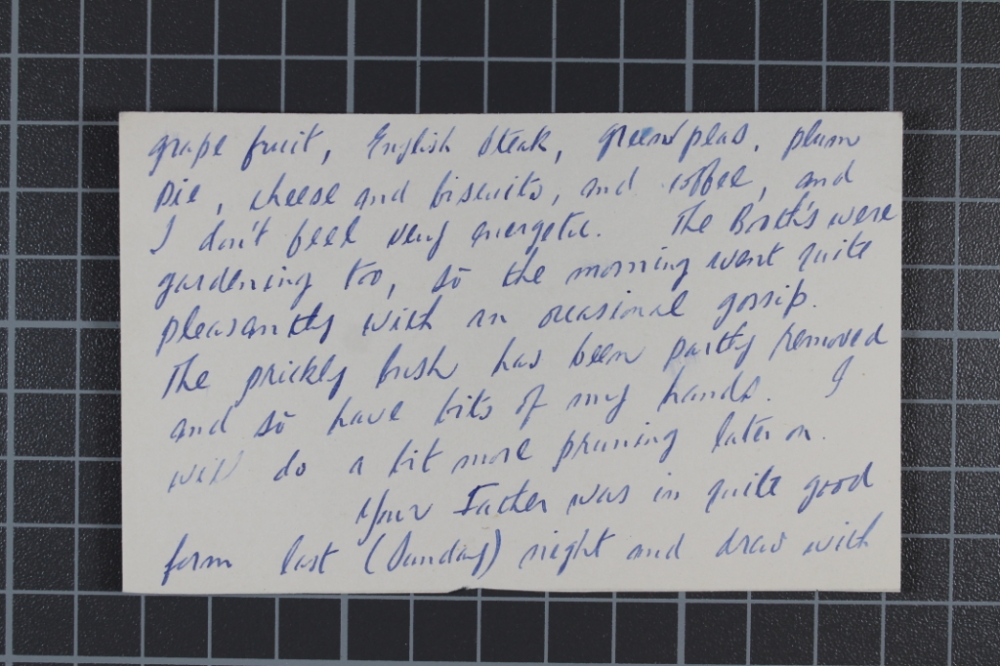 grape fruit, English steak, green peas, plum
pie, cheese and biscuits, and coffee, and
I don't feel very energetic. The Booth's were
gardening too, so the morning went quite
pleasantly with an occasional gossip.
The prickly bush has been partly removed
and so have bits of my hands. I
will do a bit more pruning later on.
Your Father was in quite good
form last (Sunday) night and drew with